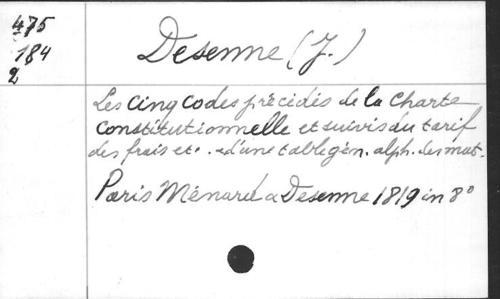 475
184
2
Desenne (J.)
Les Cinq Codes précédés de la Charte
Constitutionnelle et suivis du tarif
des frais et . d'une table gén. alph. des mat.
Paris Ménard a Desenne 1819 in 8º